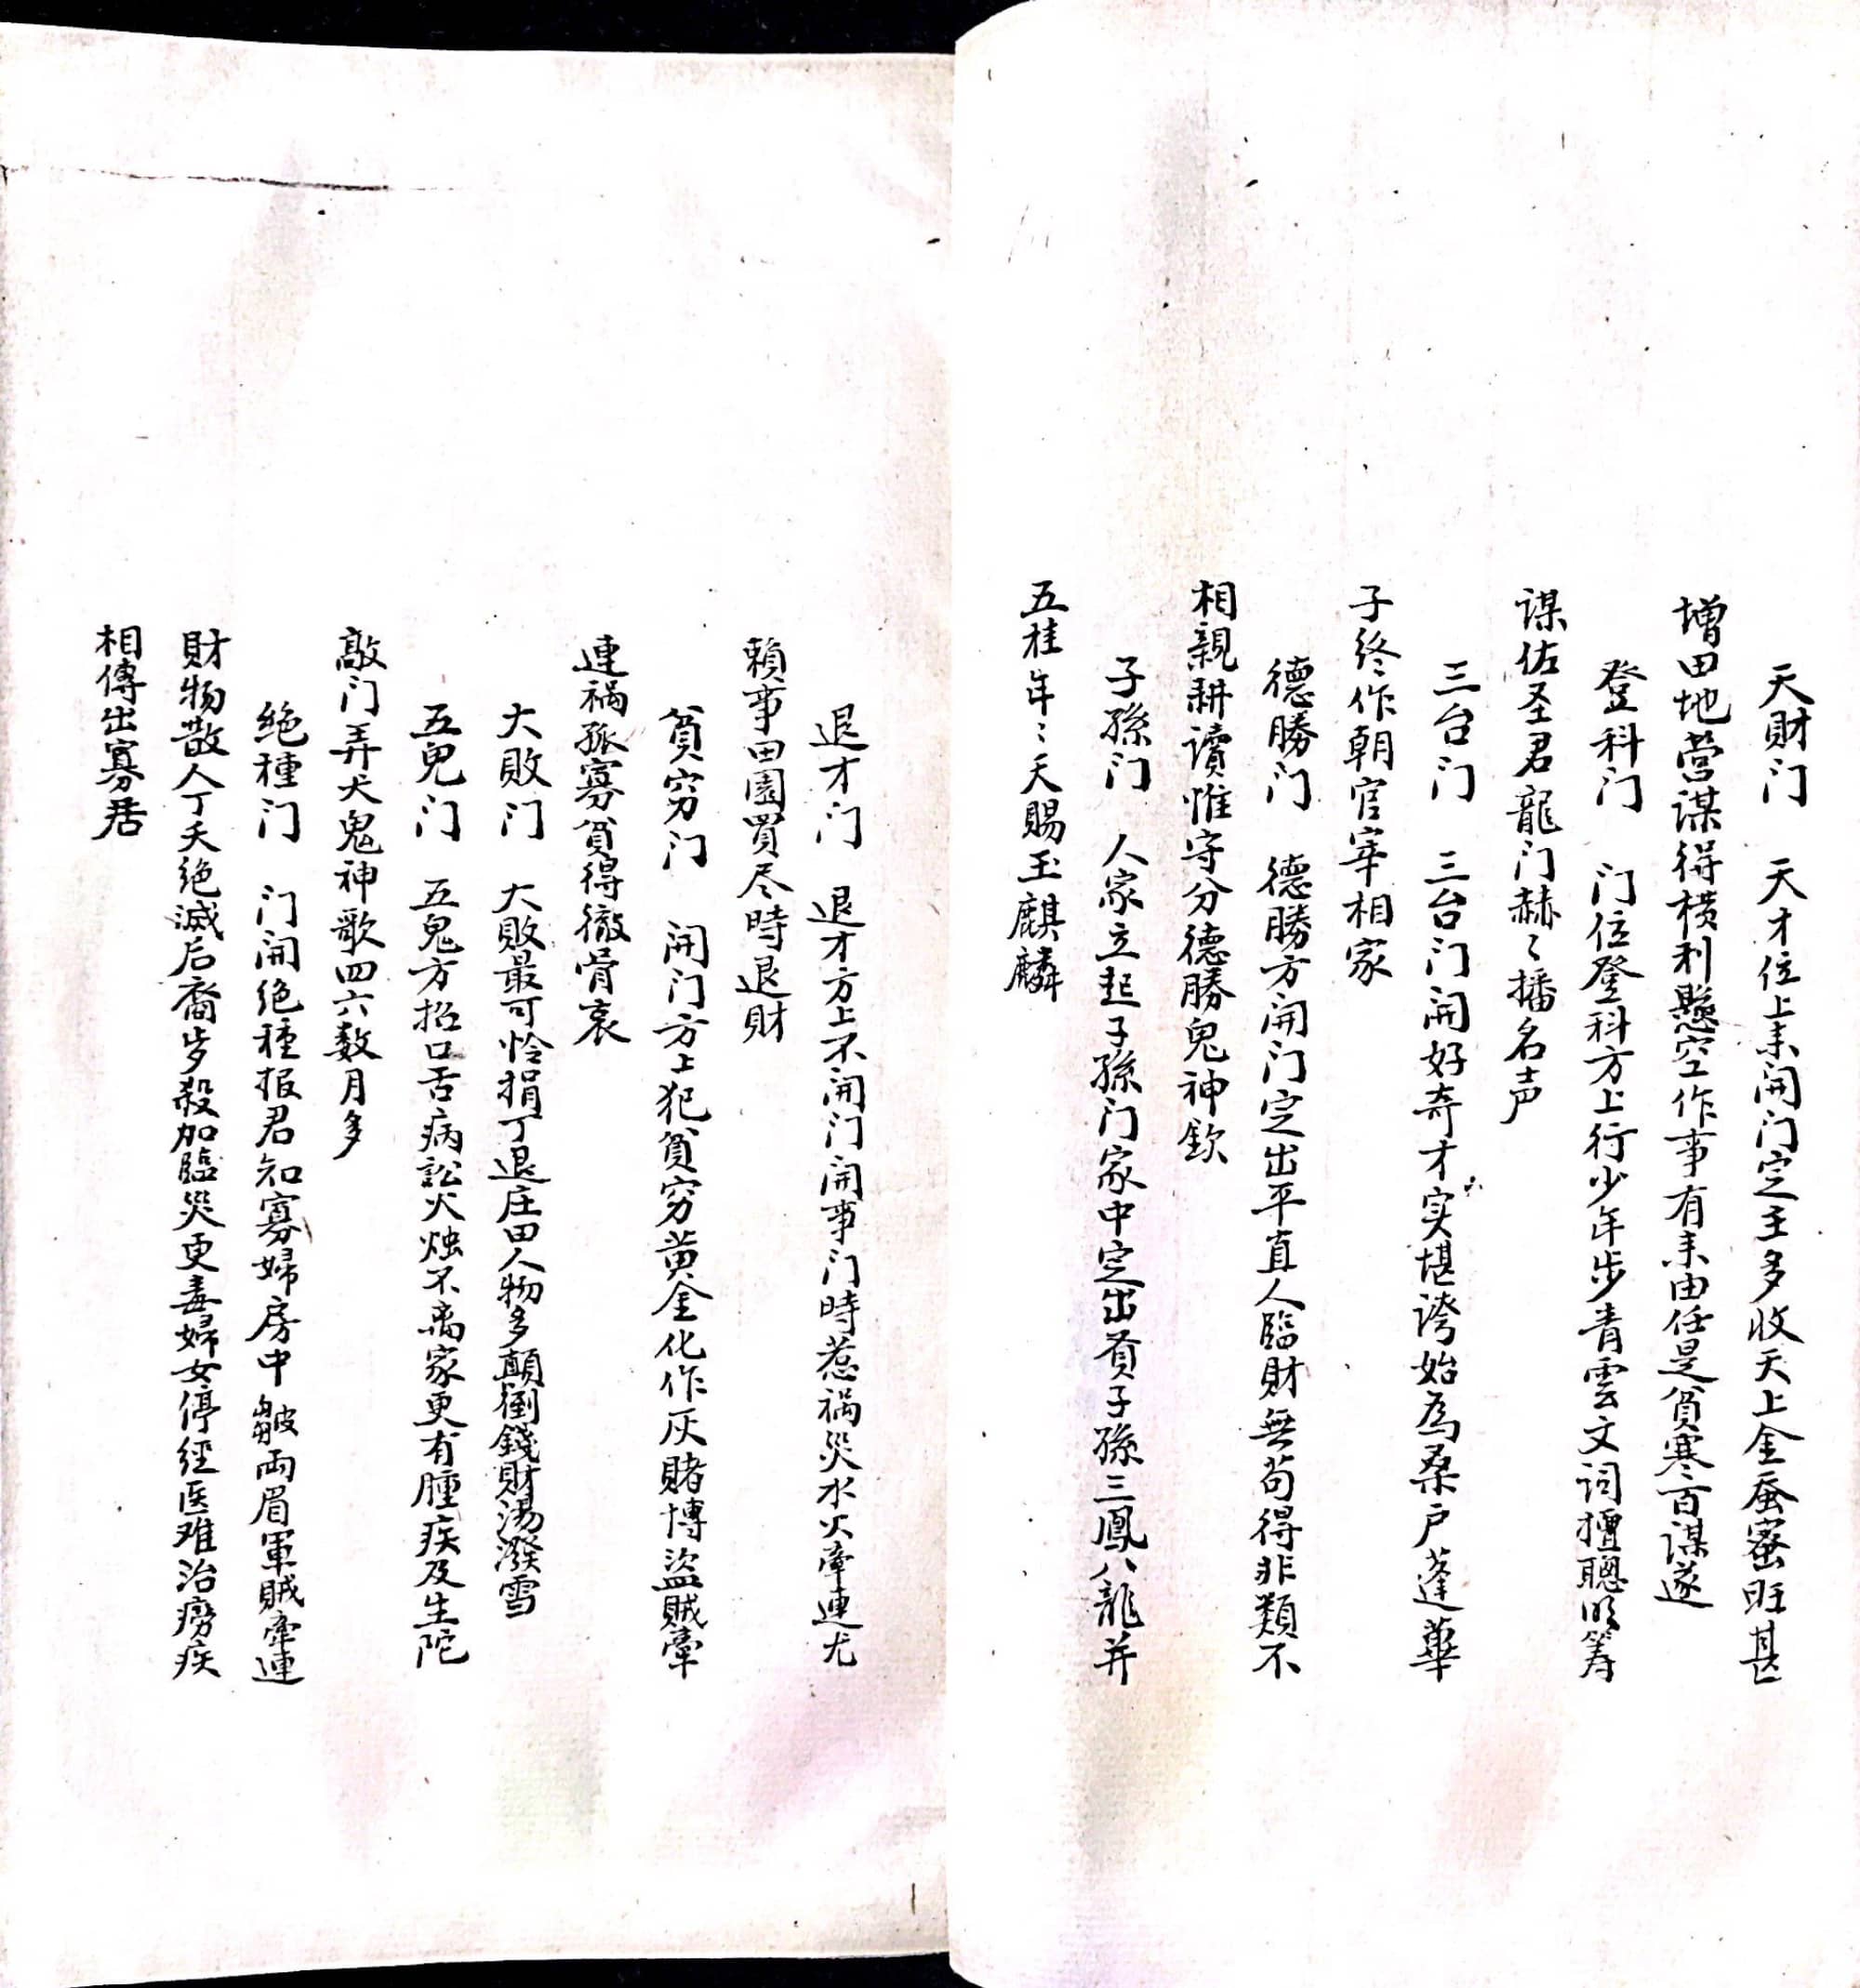 天財门　天才位上来開门定主多收天上金蚕蜜旺甚
增田地营谋得横利懸空作事有来由任是貧寒百谋遂
登科门　门位登科方上行少年步青雲文词擅聰明筹
谋佐圣君龍门赫々播名声
三台门　三台门開好奇才实堪誇始為桑户蓬蓽
子终作朝官宰相家
德勝门　德勝方開门定出平直人臨財無苟得非類不
相親耕讀惟守分德勝鬼神欽
子孫门　人家立起子孫门家中定出賁子孫三鳳八龍并
五桂年々天賜玉麒麟
退才门　退才方上不開门開事门時惹祸災水火牵連尤
賴事田園買尽時退財
貧穷门　開门方上犯貧穷黄金化作灰賭博盜贼牵
連祸孤寡貧得徹骨哀
大敗门　大敗最可怜損丁退庄田人物多顛倒錢財湯潑雪
五鬼门　五鬼方招口舌病訟火烛不离家更有腫疾及生陀
敲门弄犬鬼神歌四六数月多
绝種门　门開绝種报君知寡婦房中皺兩眉軍贼牵連
財物散人丁夭绝滅后裔岁殺加臨災更毒婦女停經医难治痨疾
相傳出寡居